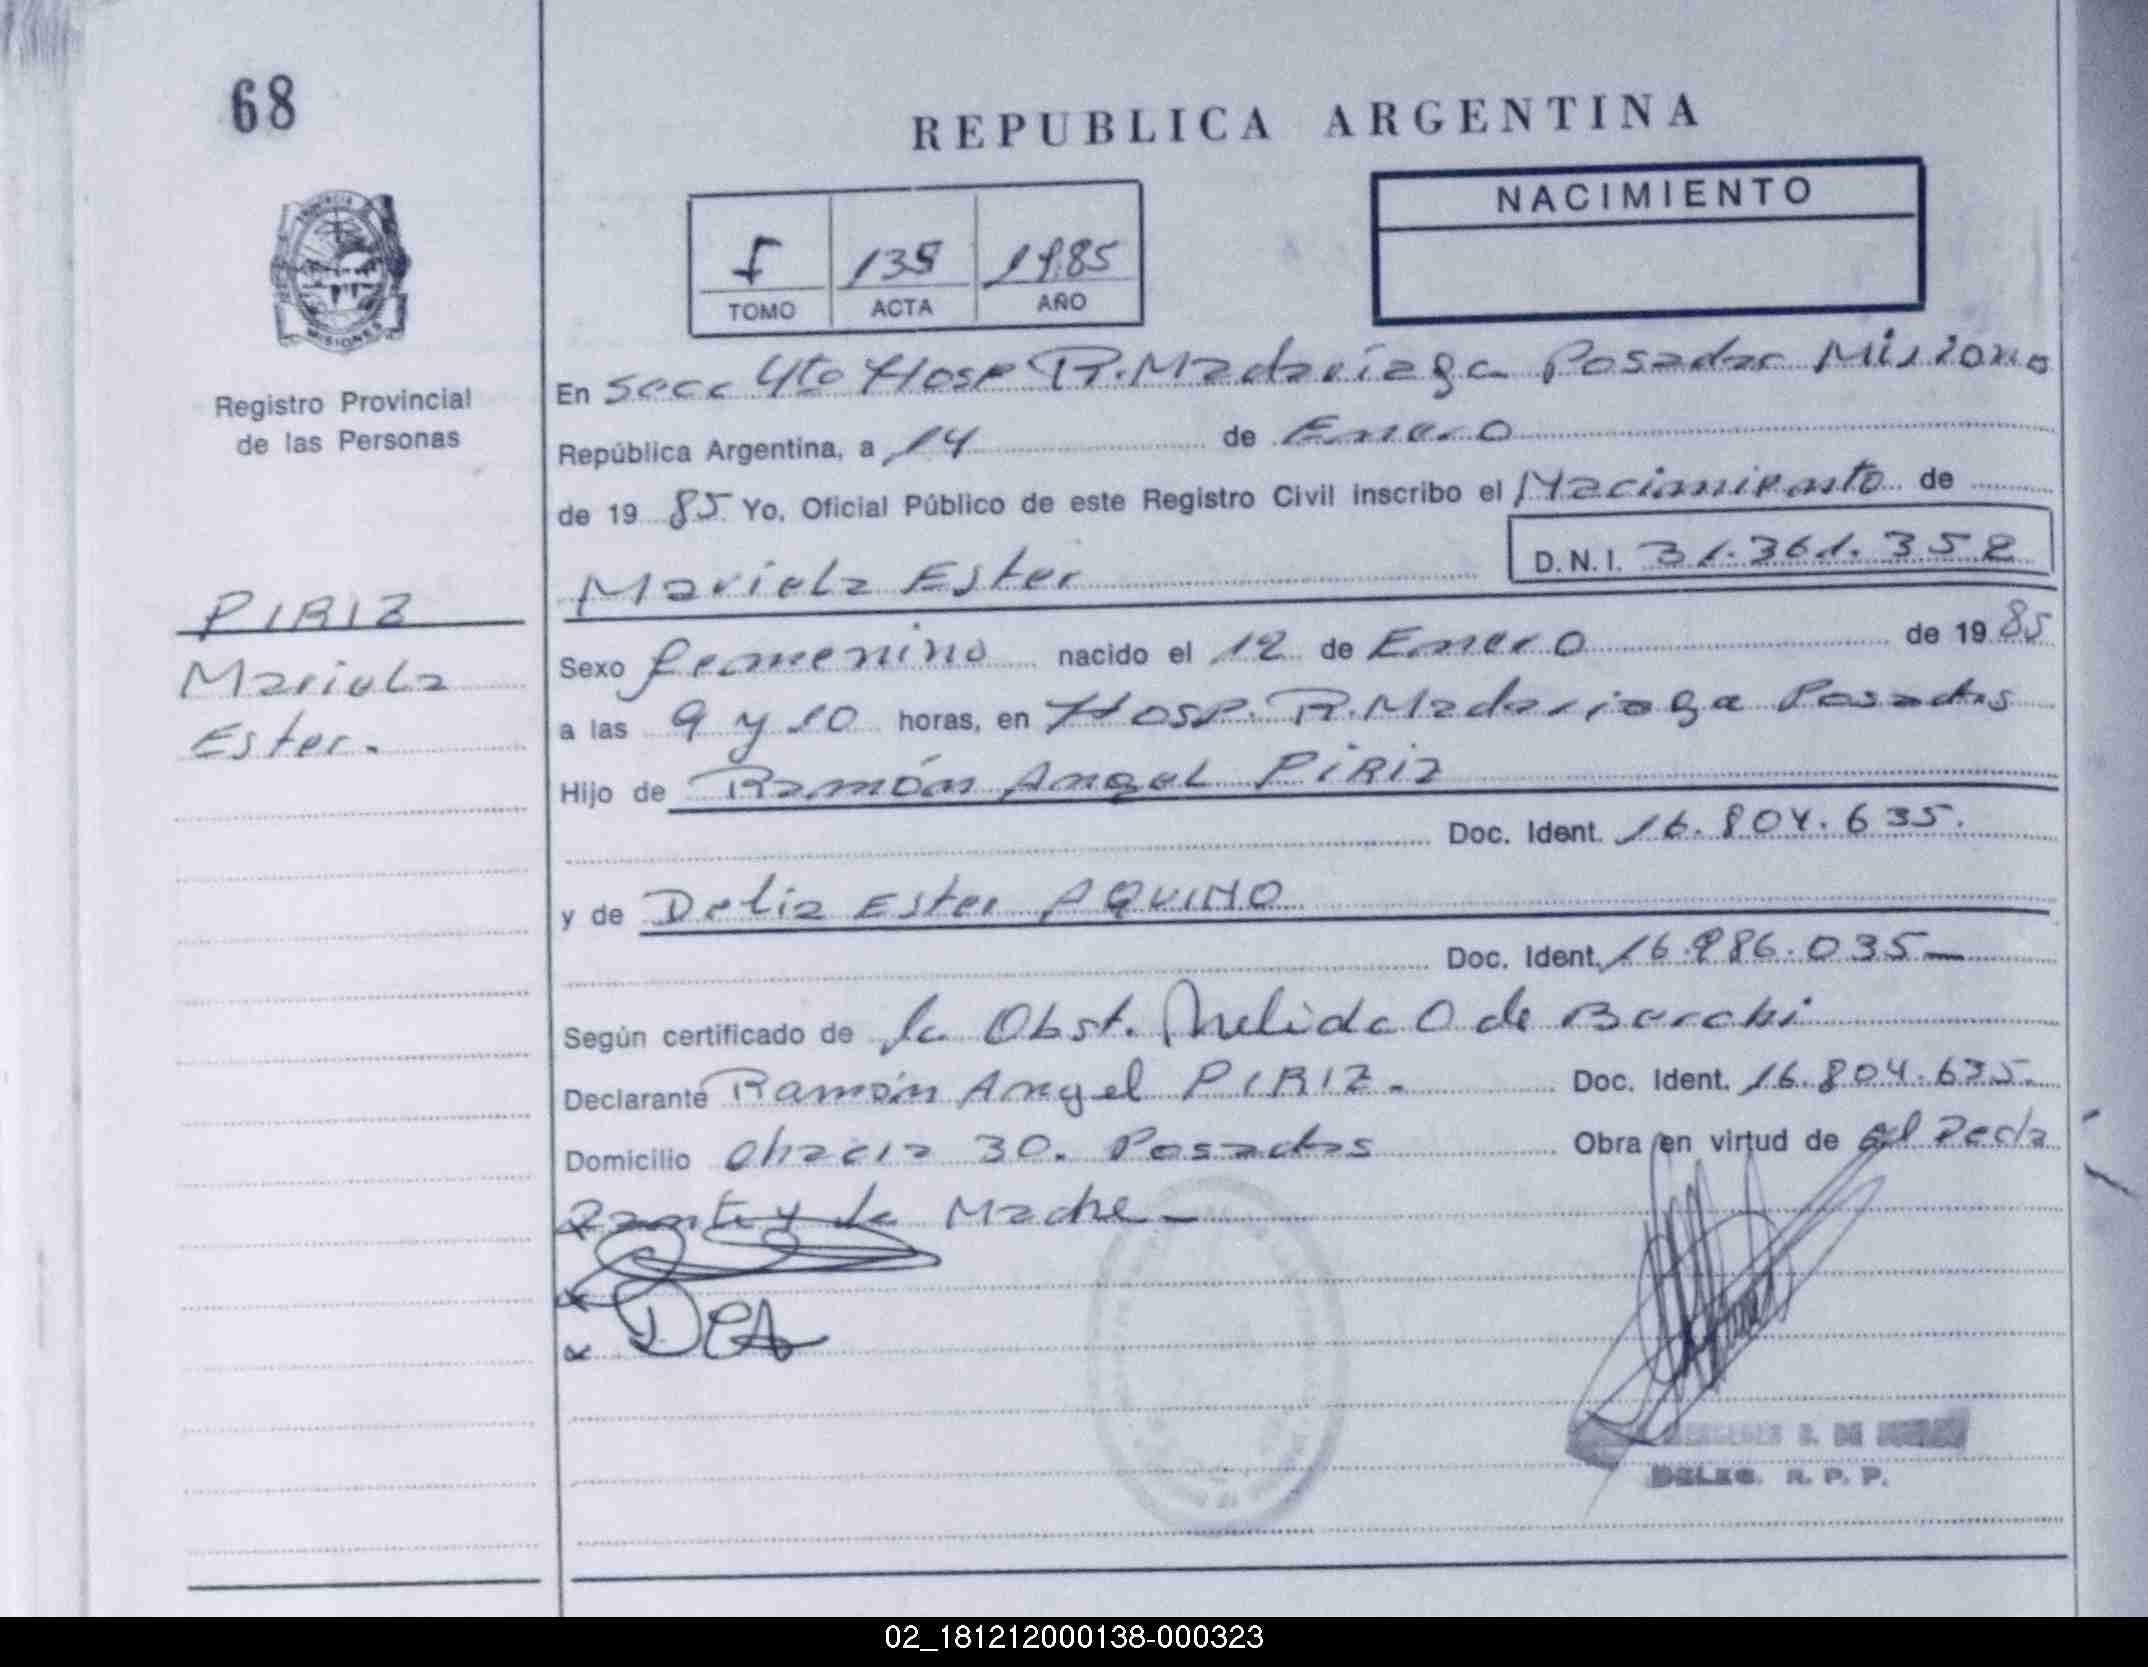 68
REPUBLICA ARGENTINA
NACIMIENTO
I 135 1985
TOMO ACTA AÑO
PROVINCIA
MISIONES
Registro Provincial
de las Personas
En Secc 4to Hosp R. Madariaga Posadas Misiones
República Argentina, a 14 de Enero
de 19 85 Yo, Oficial Público de este Registro Civil inscribo el Nacimiento de
Mariela Ester D.N.I. 31.361.352
PIRIZ
Mariela
Ester.
Sexo femenino nacido el 12 de Enero de 19 85
a las 9 y 10 horas, en Hosp. R. Madariaga Posadas
Hijo de Ramón Angel PIRIZ
Doc. Ident. 16.804.635.
y de Delia Ester AQUINO
Doc. Ident. 16.986.035
Según certificado de la Obst. Nelida O de Barchi
Declarante Ramón Angel PIRIZ. Doc. Ident. 16.804.635.
Domicilio Chacra 30. Posadas Obra en virtud de el Decla
rante y la Madre
DEA
DE
DELEG. R. P. P.
02_181212000138-000323